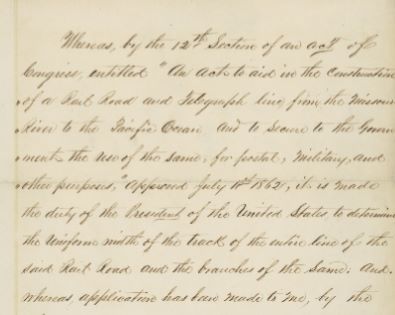 Whereas, by the 12th Section of an act of
Congress, entitled "An Act to aid in the Construction
of a Rail Road and Telegraph line from the Missouri
River to the Pacific Ocean And to Secure to the Govern
ment the use of the same, for postal, Military, and
other purposes," Approved July 1st 1862, it is made
the duty of the President of the United States, to determine
the Uniform width of the track of the entire line of the
said Rail Road and the branches of the Same: And
whereas, application has been made to me, by the